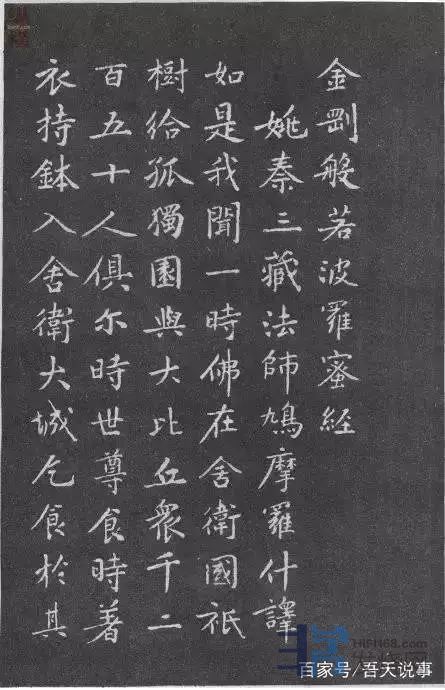 金剛般若波羅蜜經
姚秦三藏法師鳩摩羅什譯
如是我聞一時佛在舍衛國祇
樹給孤獨園與大比丘衆千二
百五十人俱尒時世尊食時著
衣持鉢入舍衛大城乞食於其
HIFN68.com
百家号/吾天说事